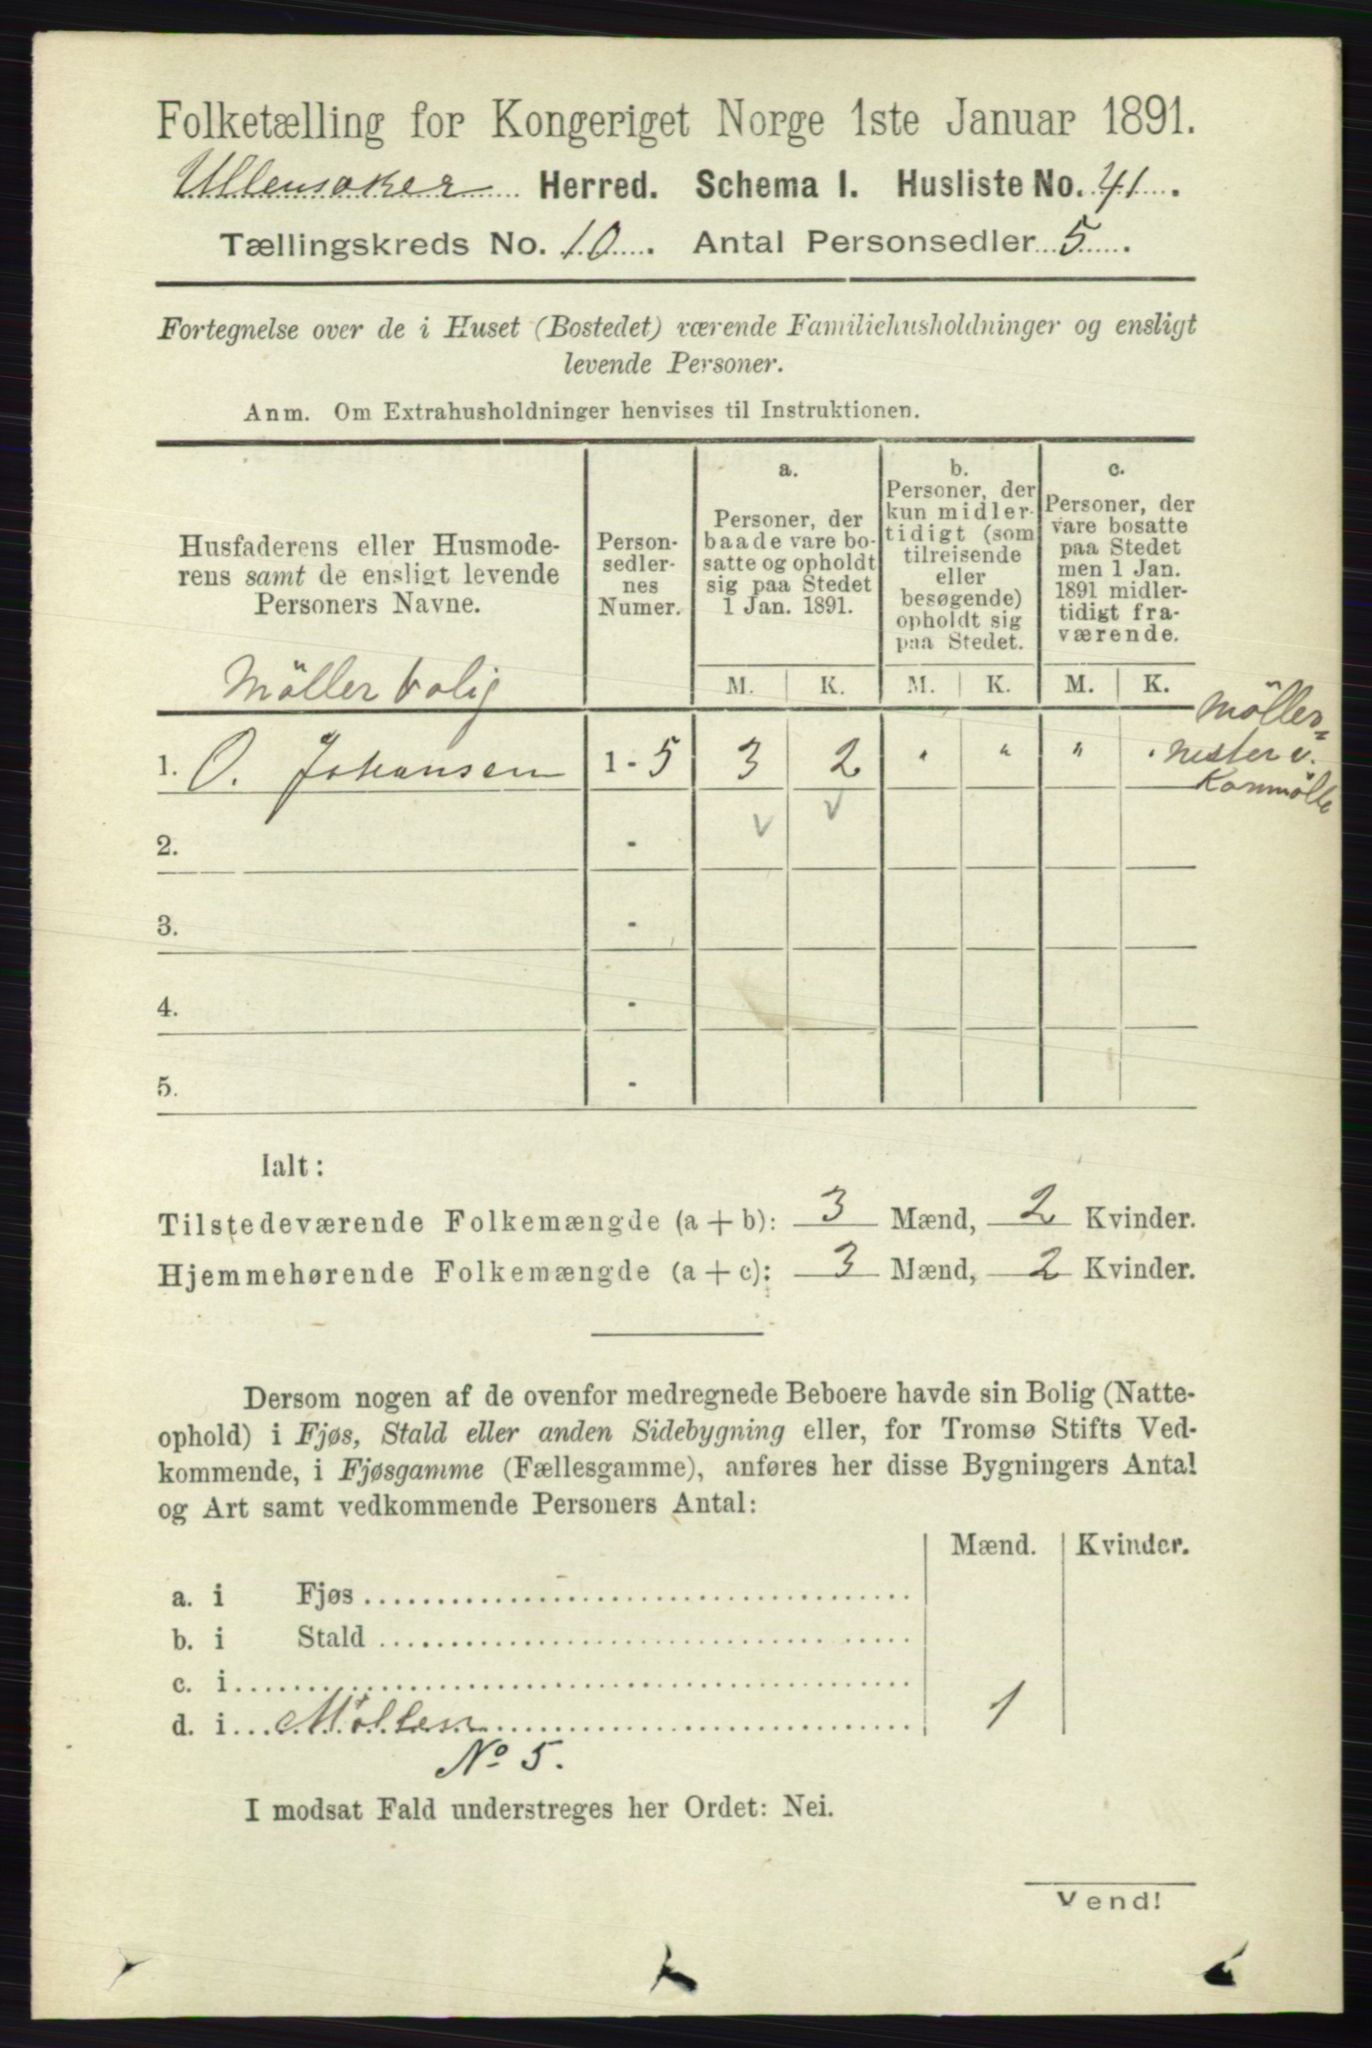 Folketælling for Kongeriget Norge 1ste Januar 1891.
Ullensaker Herred. Schema I. Husliste No. 41.
Tællingskreds No. 10. Antal Personsedler 5.
Fortegnelse over de i Huset (Bostedet) værende Familiehusholdninger og ensligt
levende Personer.
Anm. Om Extrahusholdninger henvises til Instruktionen.
Husfaderens eller Husmode-
rens samt de ensligt levende
Personers Navne.
Möllerbolig
Person-
sedler-
nes
Numer.
a.
Personer, der
baade vare bo-
satte og opholdt
sig paa Stedet
1 Jan. 1891.
b.
Personer, der
kun midler-
tidigt (som
tilreisende
eller
besøgende)
opholdt sig
paa Stedet.
c.
Personer, der
vare bosatte
paa Stedet
men 1 Jan.
1891 midler-
tidigt fra-
værende.
M. K. M. K. M. K.
1. O. Johansen 1-5 3 2 " " " "
Möller=
mester v.
Kornmölle
v v
2. -
3. -
4. -
5. -
Ialt:
Tilstedeværende Folkemængde (a + b): 3 Mænd, 2 Kvinder.
Hjemmehørende Folkemængde (a + c): 3 Mænd, 2 Kvinder.
Dersom nogen af de ovenfor medregnede Beboere havde sin Bolig (Natte-
ophold) i Fjøs, Stald eller anden Sidebygning eller, for Tromsø Stifts Ved-
kommende, i Fjøsgamme (Fællesgamme), anføres her disse Bygningers Antal
og Art samt vedkommende Personers Antal:
Mænd. Kvinder.
a. i Fjøs
b. i Stald
c. i
d. i Möllen 1
No 5.
I modsat Fald understreges her Ordet: Nei.
Vend!